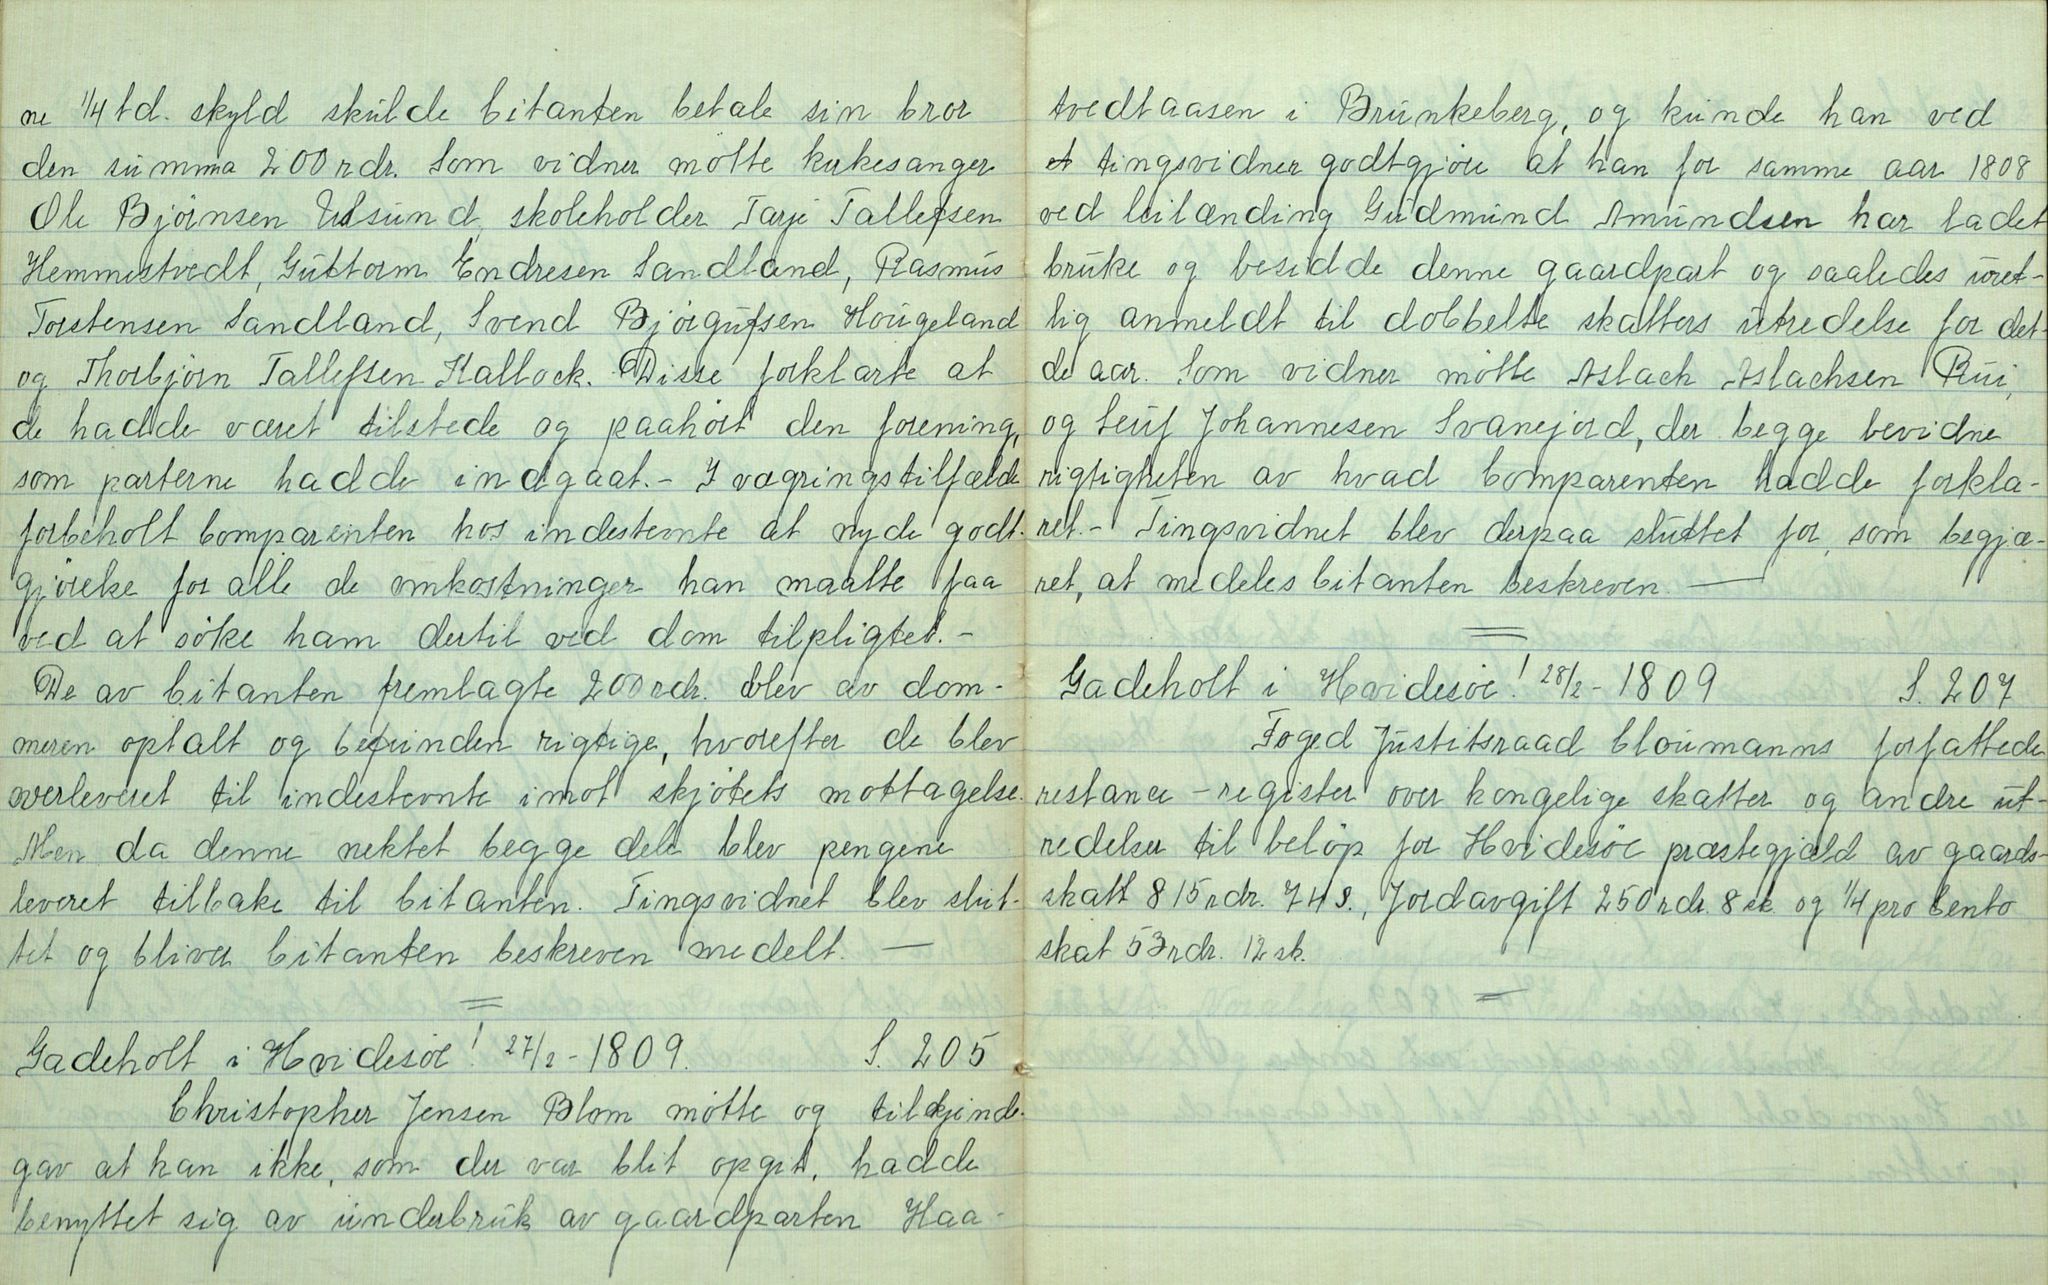 ne 1/4 td. skyld skulde Citanten betale sin bror
den summa 200 rdr. Som vidner møtte kirkesanger
Ole Bjørnsen Ulsund, skoleholder Tarje Tallefsen
Hemmestvedt, Guttorm Endresen Sandland, Rasmus
Torstensen Sandland, Svend Bjørgufsen Hougeland
og Thorbjørn Tallefsen Kallock. Disse forklarte at
de hadde været tilstede og paahørt den forening,
som parterne hadde indgaat. - I vægringstilfælde
forbeholt Comparenten hos indestevnte at nyde godt-
gjørelse for alle de omkostninger han maatte faa
ved at søke ham dertil ved dom tilpligtet. -
De av Citanten fremlagte 200 rdr. blev av dom-
meren optalt og befunden rigtige, hvorefter de blev
overleveret til indestevnte imot skjøtets mottagelse.
Men da denne nektet begge dele blev pengene
leveret tilbake til Citanten. Tingsvidnet blev slut-
tet og bliver Citanten beskreven medelt. —
Gadeholt i Hvidesøe! 27/2 - 1809. S. 205
Christopher Jensen Blom møtte og tilkjende-
gav at han ikke, som der var blit opgit, hadde
benyttet sig av underbruk av gaardparten Haa-
tvedtaasen i Brunkeberg, og kunde han ved
tingsvidner godtgjøre at han for samme aar 1808
ved leilænding Gudmund Amundsen har ladet
bruke og besidde denne gaardpart og saaledes uret-
lig anmeldt til dobbelte skatters utredelse for det-
de aar. Som vidner møtte Aslach Aslachsen Rui,
og Leuf Johannesen Svanejord, der begge bevidne
rigtigheten av hvad Comparenten hadde forkla-
ret. - Tingsvidnet blev derpaa sluttet for, som begjæ-
ret, at medeles Citanten beskreven. —
Gadeholt i Hvidesøe! 28/2 - 1809 S. 207
Foged Justitsraad Cloumanns forfattede
restance - register over kongelige skatter og andre ut-
redelser til beløp for Hvidesøe præstegjæld av gaards-
skatt 815 rdr. 74 s., Jordavgift 250 rdr. 8 sk. og 1/4 pro Cento
skat 53 rdr. 12 sk.